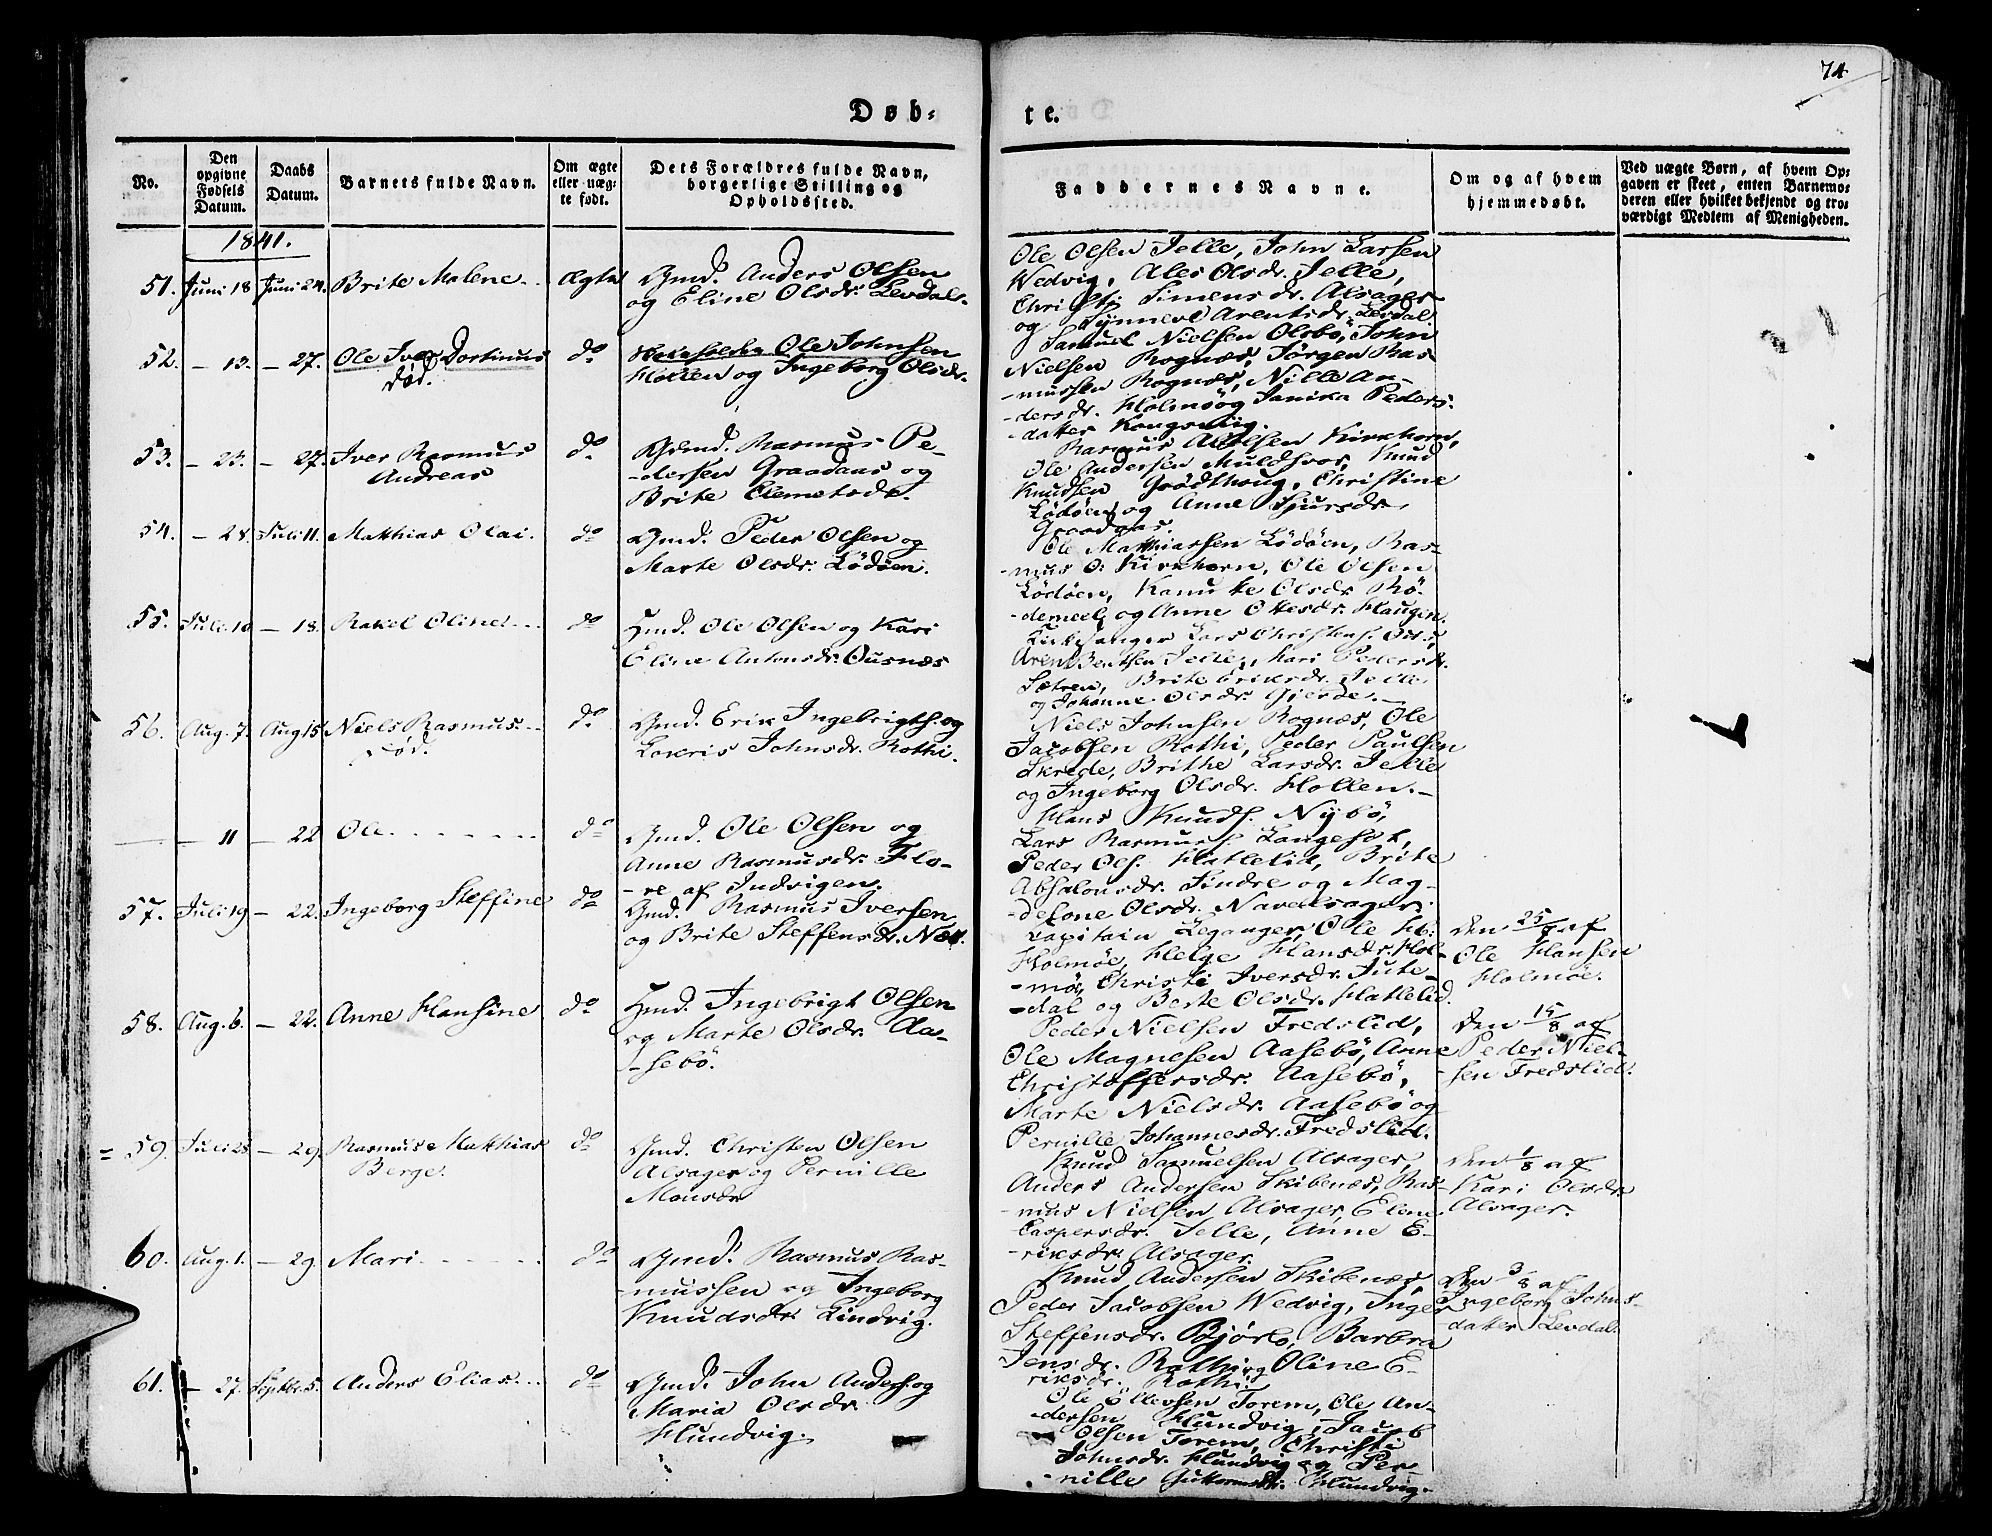 74
Døb-
te.
No.
Den opgivne Fødsels Datum.
Daabs Datum.
Barnets fulde Navn.
Om ægte eller uæg-te født.
Dets Forældres fulde Navn, borgerlige Stilling og Opholdssted.
Faddernes Navne.
Om og af hvem hjemmedøbt.
Ved uægte Børn, af hvem Op-gaven er skeet, enten Barnemo-deren eller hvilket bekjendt og tro-værdigt Medlem af Menigheden.
1841.
51. Juni 18 Juni 24. Brite Malene Ægte
Gmd. Anders Olsen
og Eline Olsdr. Levdal.
Ole Olsen Jelle, John Larsen
Wedvig, Ales Olsdr. Jelle,
Christj Simensdr. Alsager
og Synneve Arentsdr. Levdal
52. — 13. — 27. Ole Iver Dortinus do
død.
Ole Johnsen
Hollen og Ingeborg Olsdr.
Samuel Nielsen Olsbø, John
Nielsen Rognæs, Jørgen Ras-
mussen Rognæs, Nille An-
dersdr. Holmøog Janika Peders-
datter Kongsvig.
53. — 23. — 27. Iver Rasmus do
Andreas
Gmd. Rasmus Pe-
dersen Graadaas og
Brite Clemetsdr.
Rasmus Kirkhorn,
Ole Andersen Muldsvor, Knud
Knudsen Grødthoug, Christine
Lødøen og Anne Sjursdr.
Graadaas.
54. — 28. Juli 11. Matthias Olai. do
Gmd. Peder Olsen og
Marte Olsdr. Lødøen.
Ole Matthiassen Lødøen, Ras-
mus O: Kirkhorn, Ole Olsen
Lødøen, Olsdr. Rø-
demeel og Anne Ottesdr. Haugen.
55. Juli 10 — 18. Rakel Oline do
Hmd. Ole Olsen og Kari
Eline Antonsdr. Ousnæs
Kirkesanger Lars Christens.
Arent Bentsen Jelle, Mari Pedersdr.
Sætren, Brite Eriksdr. Jelle
og Johanne Olsdr. Gjerde.
56. Aug. 7. Aug 15 Niels Rasmus do
død.
Gmd. Erik Ingebrigts. og
Johnsdr. Rothi.
Niels Johnsen Rognæs, Ole
Jacobsen Rothi, Peder Paulsen
Skrede, Brithe Larsdr. Jelle
og Ingeborg Olsdr. Hollen.
— — 11 — 22 Ole do
Gmd. Ole Olsen og
Anne Rasmusdr. Flo-
re af Indvigen.
Hans Knuds. Nybø,
Lars Rasmuss. Langeset,
Peder Ols. Hatlelid, Brite
Absalonsdr. Sindre og Mag-
delone Olsdr. Navelsager.
57. Juli 19 — 22. Ingeborg Steffine do
Gmd. Rasmus Iversen
og Brite Steffensdr. Næs.
Capitain Leganger, Ole H:
Holmøe, Helge Hansdr. Hol-
mø, Christi Iversdr. Jute-
dal og Berte Olsdr. Hatlelid.
Den 25/7 af
Ole Hansen
Holmøe.
58. Aug. 6. — 22. Anne Hansine do
Hmd. Ingebrigt Olsen
og Marte Olsdr. Aa-
sebø.
Peder Nielsen Fredslid,
Ole Magnesen Aasebø, Anne
Christoffersdr. Aasebø,
Marte Nielsdr. Aasebø og
Pernille Johannesdr. Fredslid.
Den 15/8 af
Peder Niel-
sen Fredslid.
= 59. Juli 25 — 29. Rasmus Matthias do
Berge.
Gmd. Christen Olsen
Alsager og Pernille
Monsdr
Knud Samuelsen Alsager,
Anders Andersen Skibenæs, Ras-
mus Nielsen Alsager, Elene
Caspersdr. Jelle, Anne E-
riksdr. Alsager.
Den 1/8 af
Kari Olsdr.
Alsager.
60. Aug. 1. — 29. Mari do
Gmd. Rasmus Ras-
mussen og Ingeborg
Knudsdr. Lindvig.
Knud Andersen Skibenæs,
Peder Jacobsen Wedvig, Inger
Steffensdr. Bjørlo, Barbra
Jensdr. Rothi og Oline E-
riksdr. Rothi
Den 3/8 af
Ingeborg Johns-
datter Levdal.
61. — 27. Septbr. 5. Anders Elias do
Gmd. John Anders. og
Maria Olsdr.
Hundvig.
Ole Ellevsen Torem, Ole An-
dersen Hundvig, Jacob
Olsen Torem, Christi
Johnsdr. Hundvig og Per-
nille Guttormsdr. Hundvig.